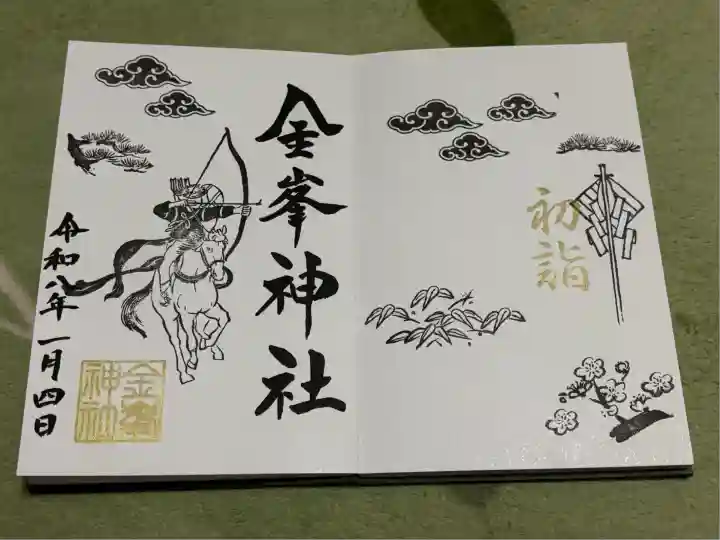 初詣
金峯神社
令和八年 一月四日
金峯
神社